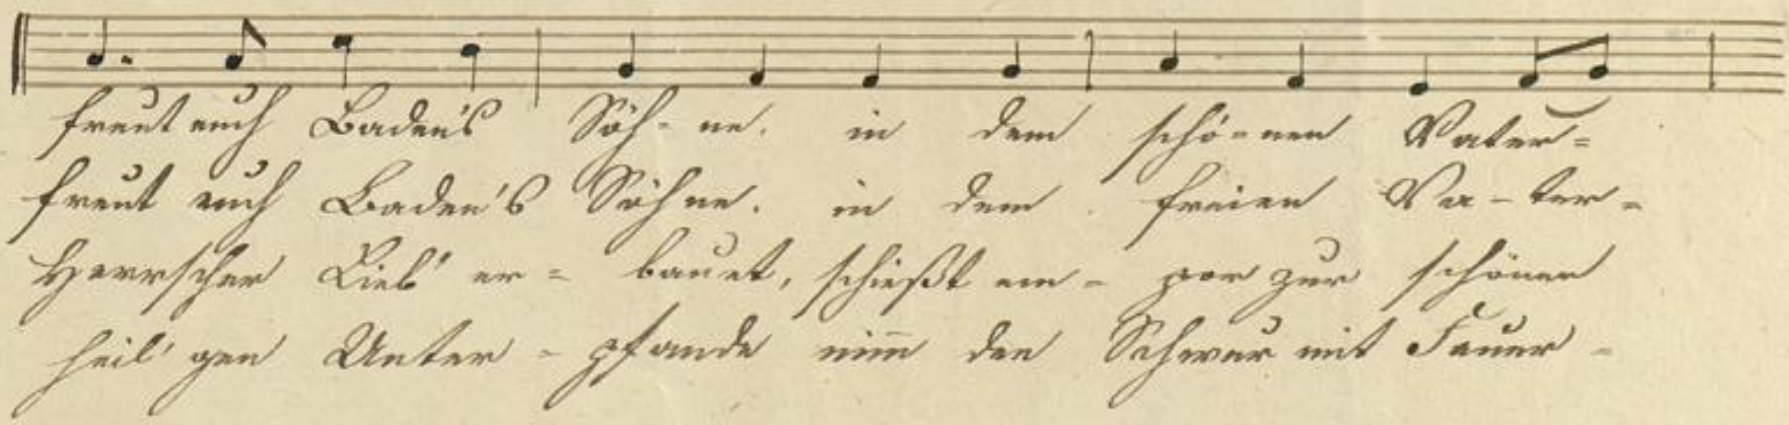 freut euch Baden's Söh- ne. in dem schö-nen Vater=
freut euch Baden's Söhne. in dem freien Va-ter-
Herrscher Lieb' er= bauet, schießt em- por zur schönen
heil'gen Unter-pfande nim̅ den Schwur mit Feuer-